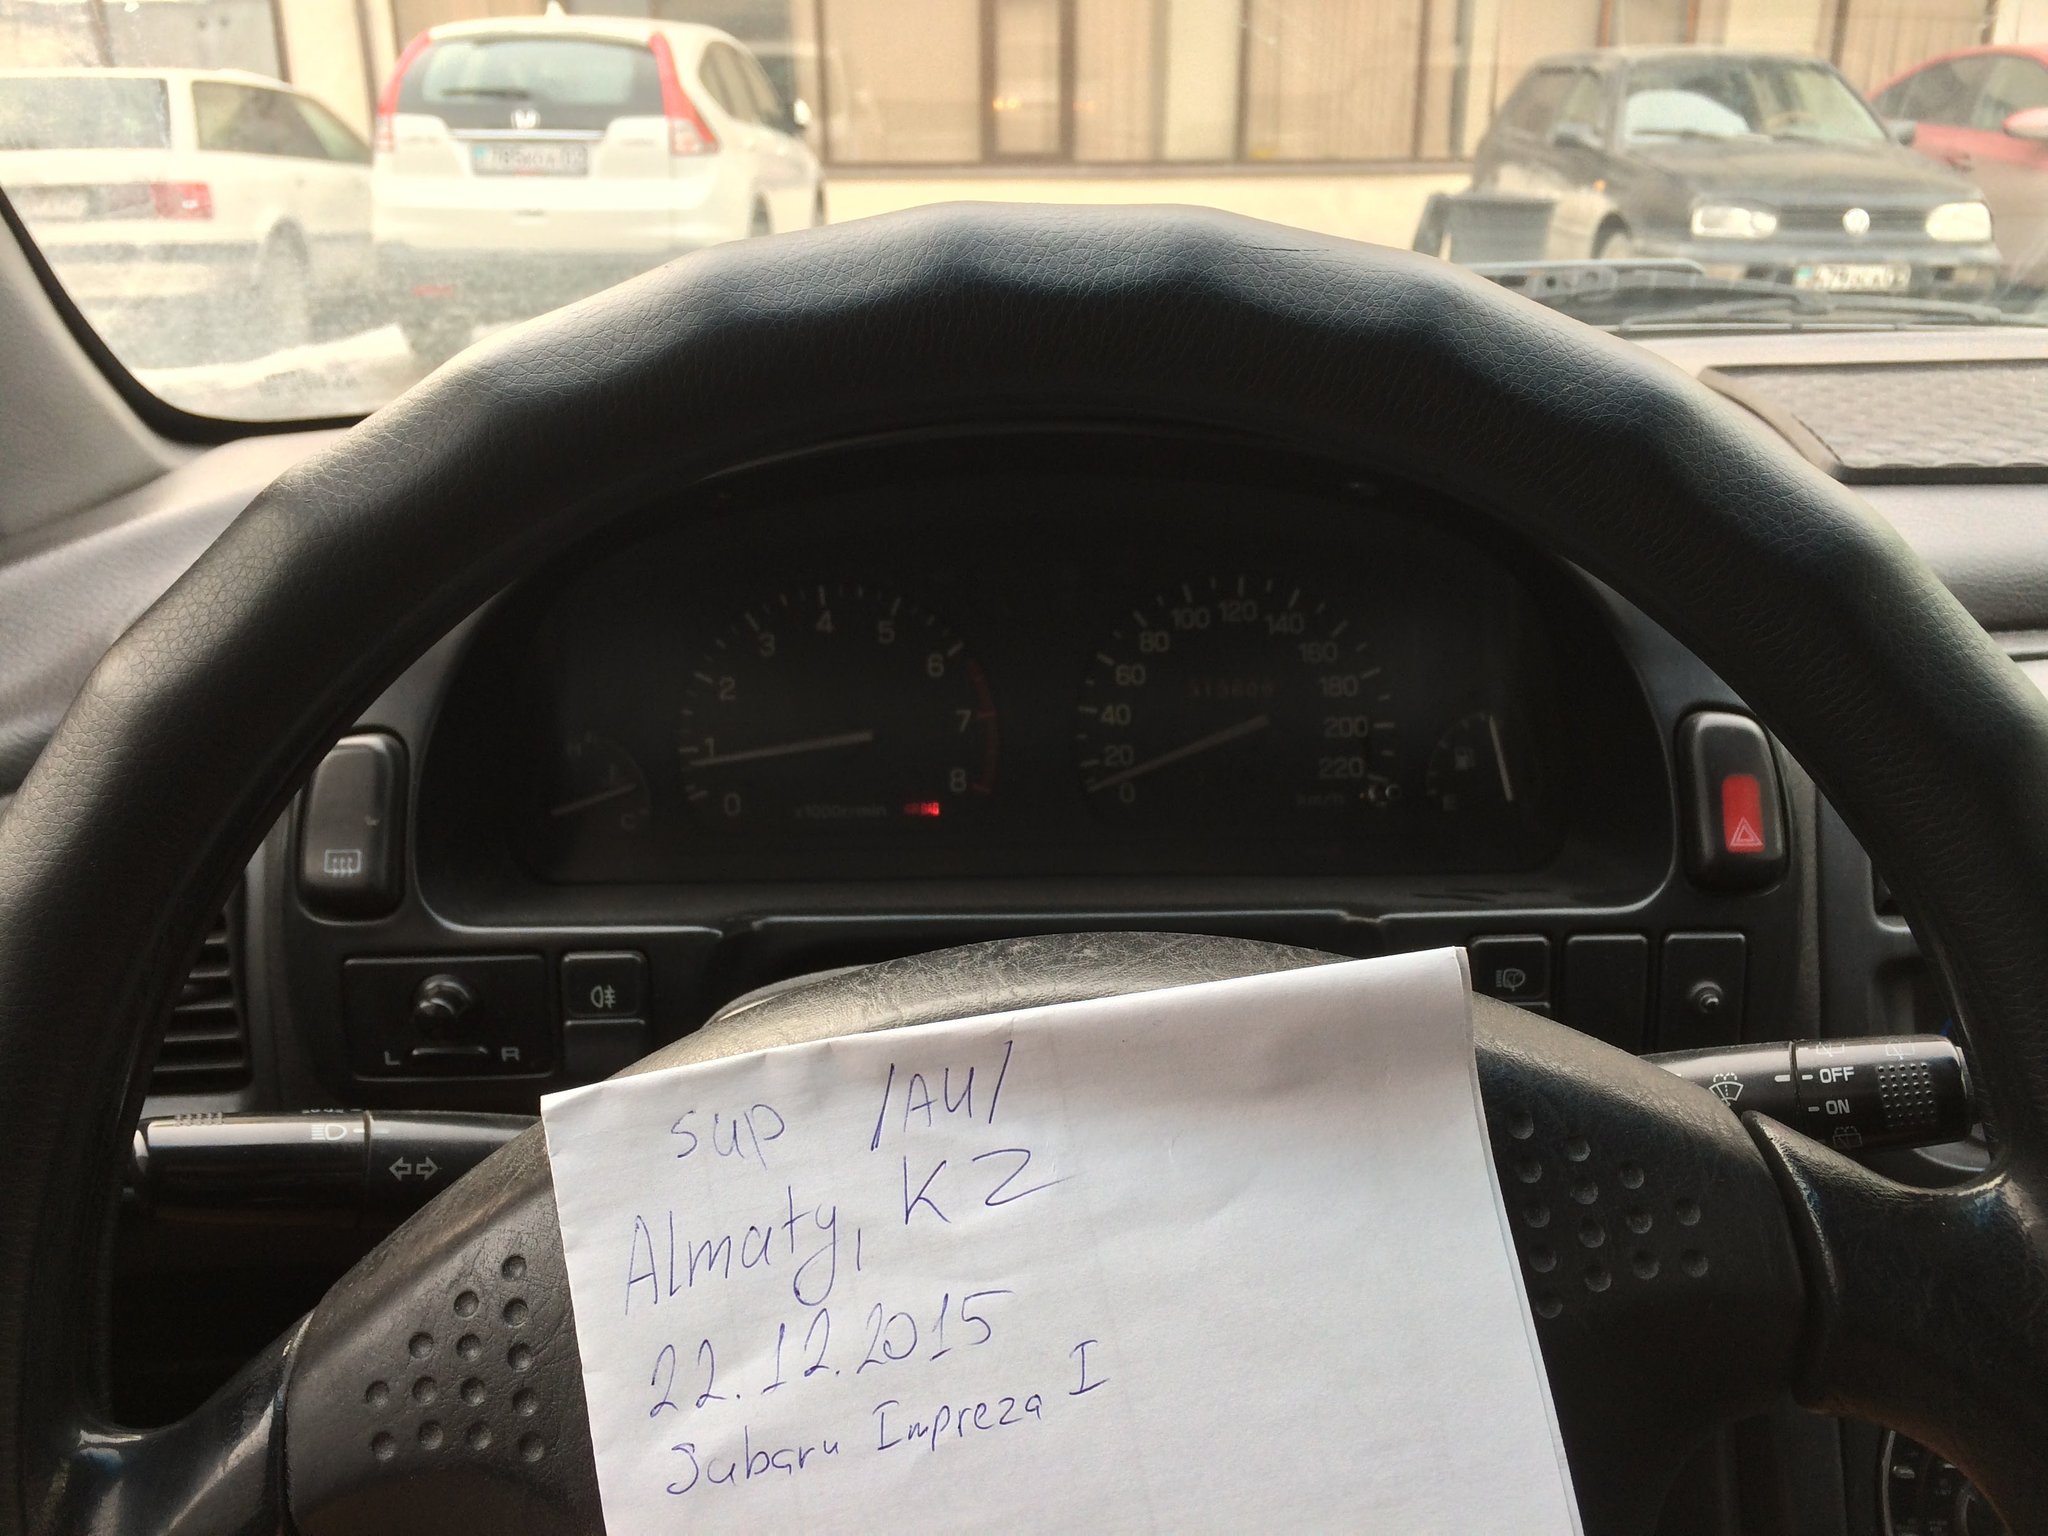 1
2
3
4
5
6
7
8
0
x1000r/min
0
20
40
60
80
100
120
140
160
180
200
220
km/h
H
C
E
L R
OFF
ON
sup /AU/
Almaty, KZ
22.12.2015
Subaru Impreza I